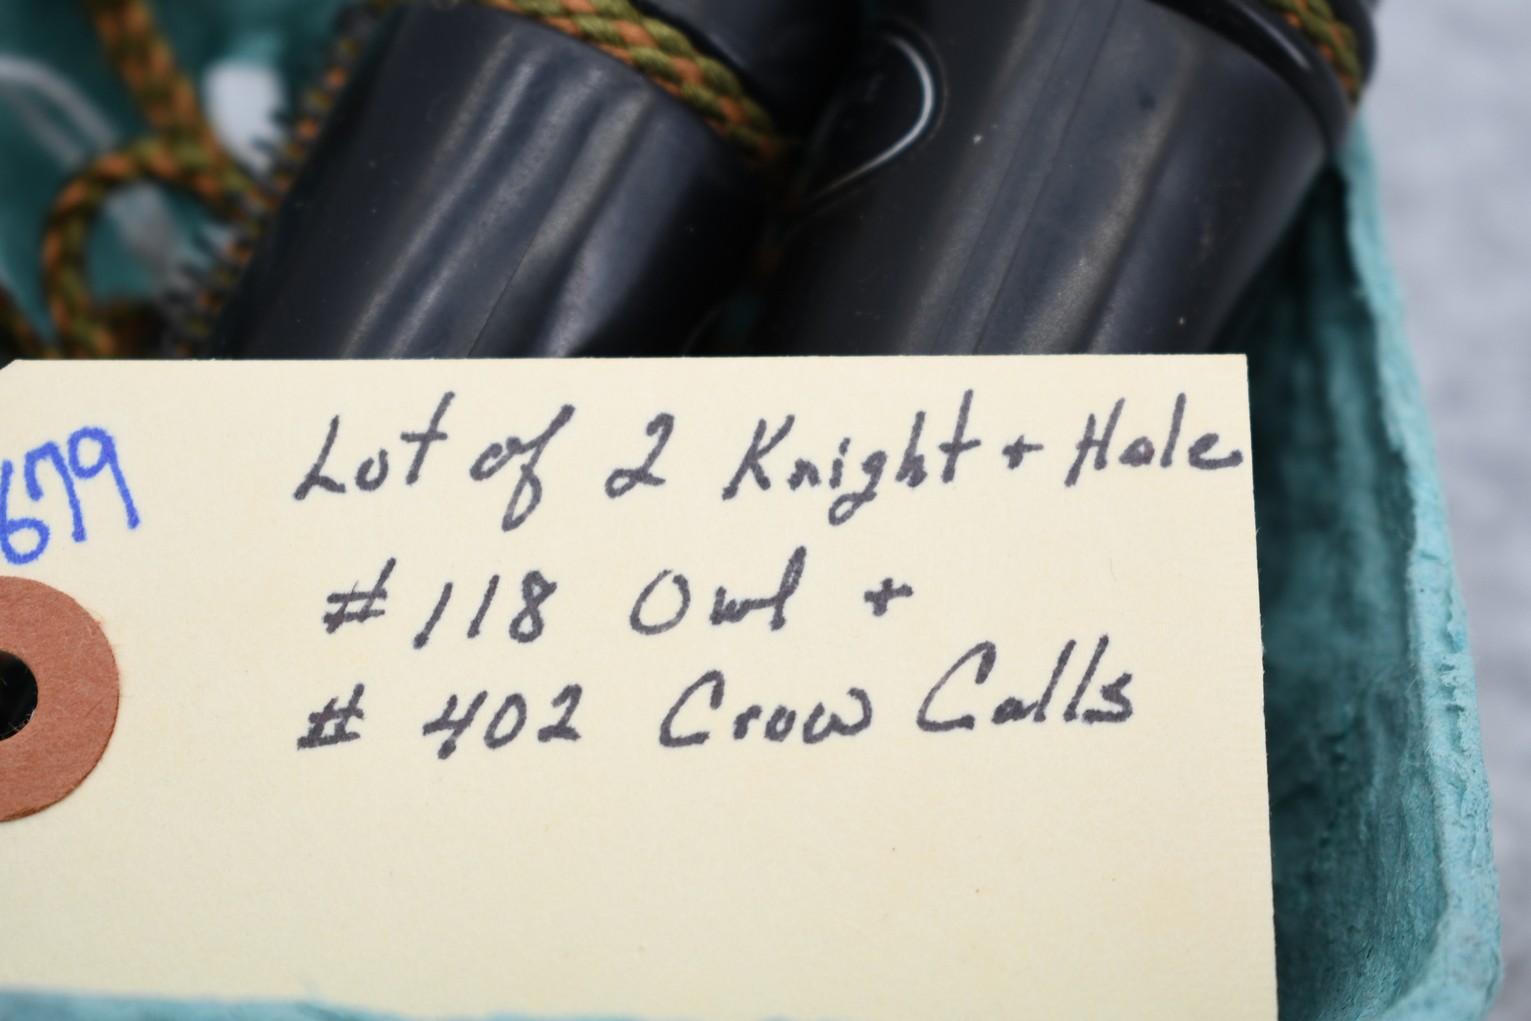 679
Lot of 2 Knight + Hale
#118 Owl +
# 402 Crow Calls